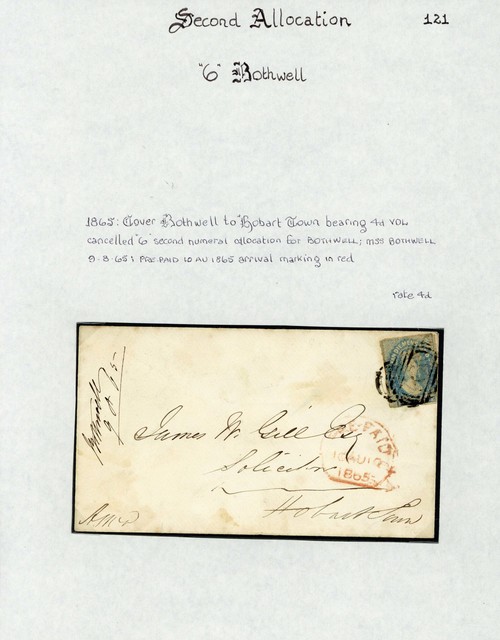 Second Allocation 121
"6" Bothwell
1865: Cover Bothwell to Hobart Town bearing 4d VDL
cancelled "6" second numeral allocation for BOTHWELL; mss BOTHWELL
9.8.65; PRE-PAID 10 AU 1865 arrival marking in red
rate 4d
Bothwell
9 8 65
James W. Gill Esq
Solicitor
Hobart Town
PAID
10 AU
1865